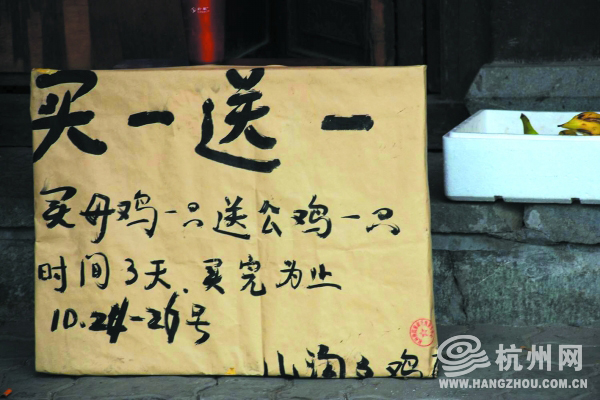 买一送一
买母鸡一只送公鸡一只
时间3天、买完为止
10.24-26号
杭州网
WWW.HANGZHOU.COM.CN